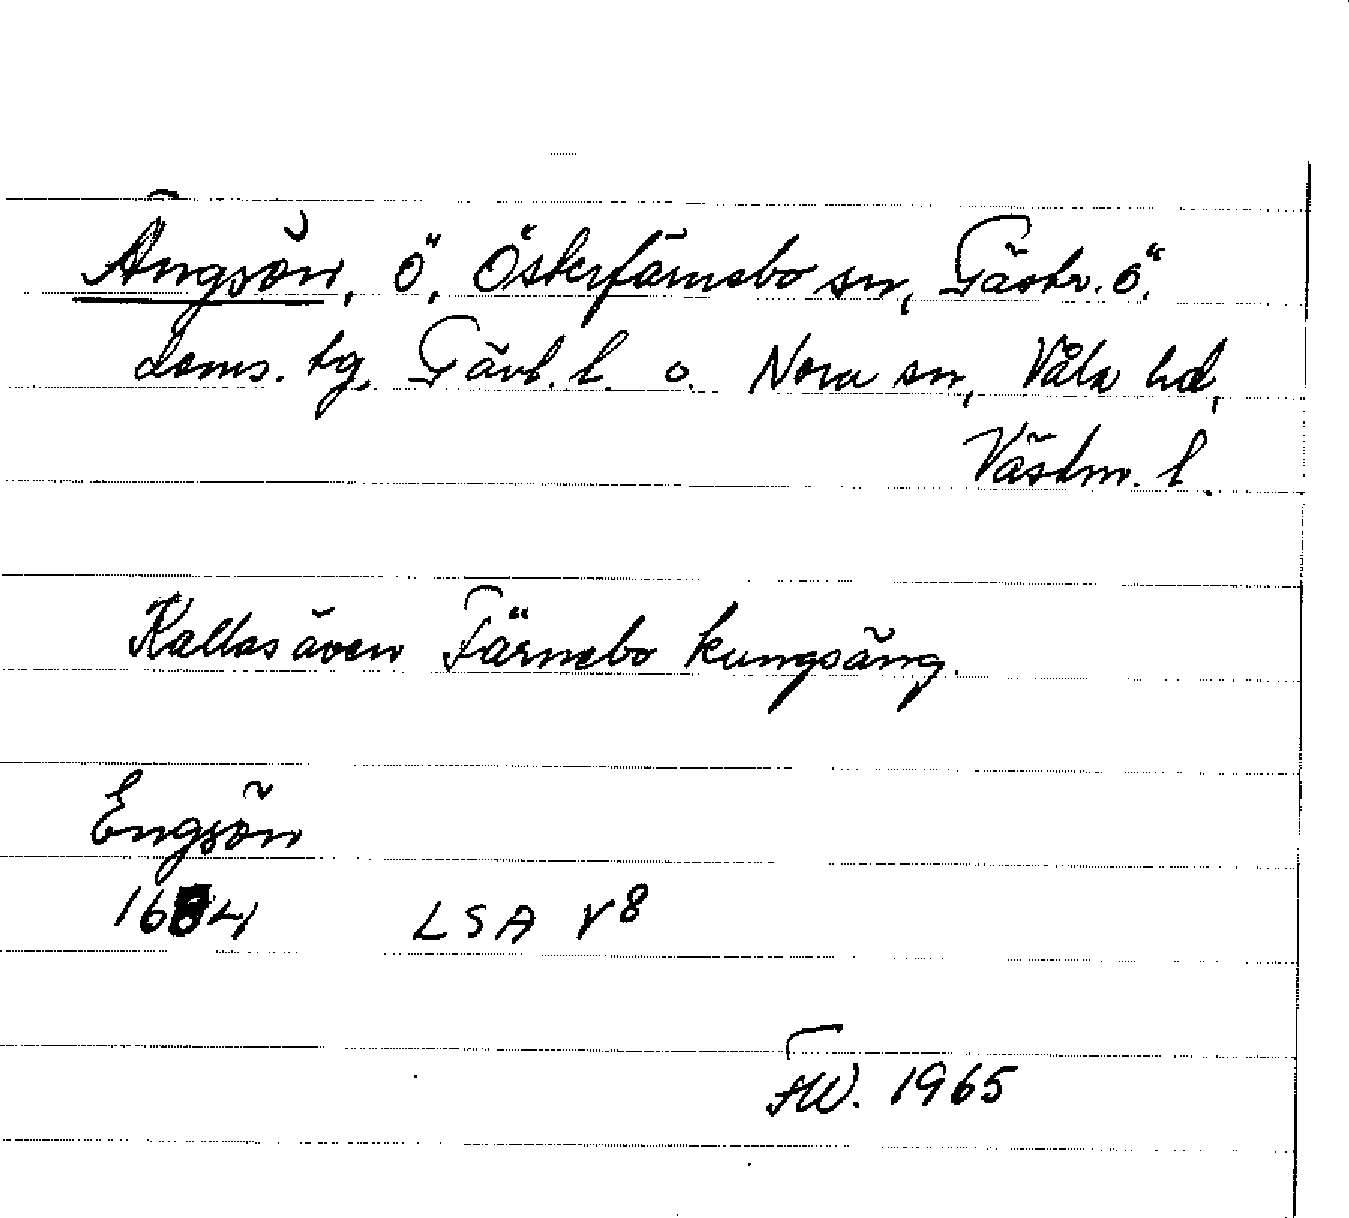 Ängsön, ö, Österfärnebo sn, Gästr. ö.
doms. lg, Gävl. l. o. Nora sn, Våla hd,
Västm. l.
Kallas även Färnebo kungsäng.
Engsön
1684 LSA V8
FW. 1965